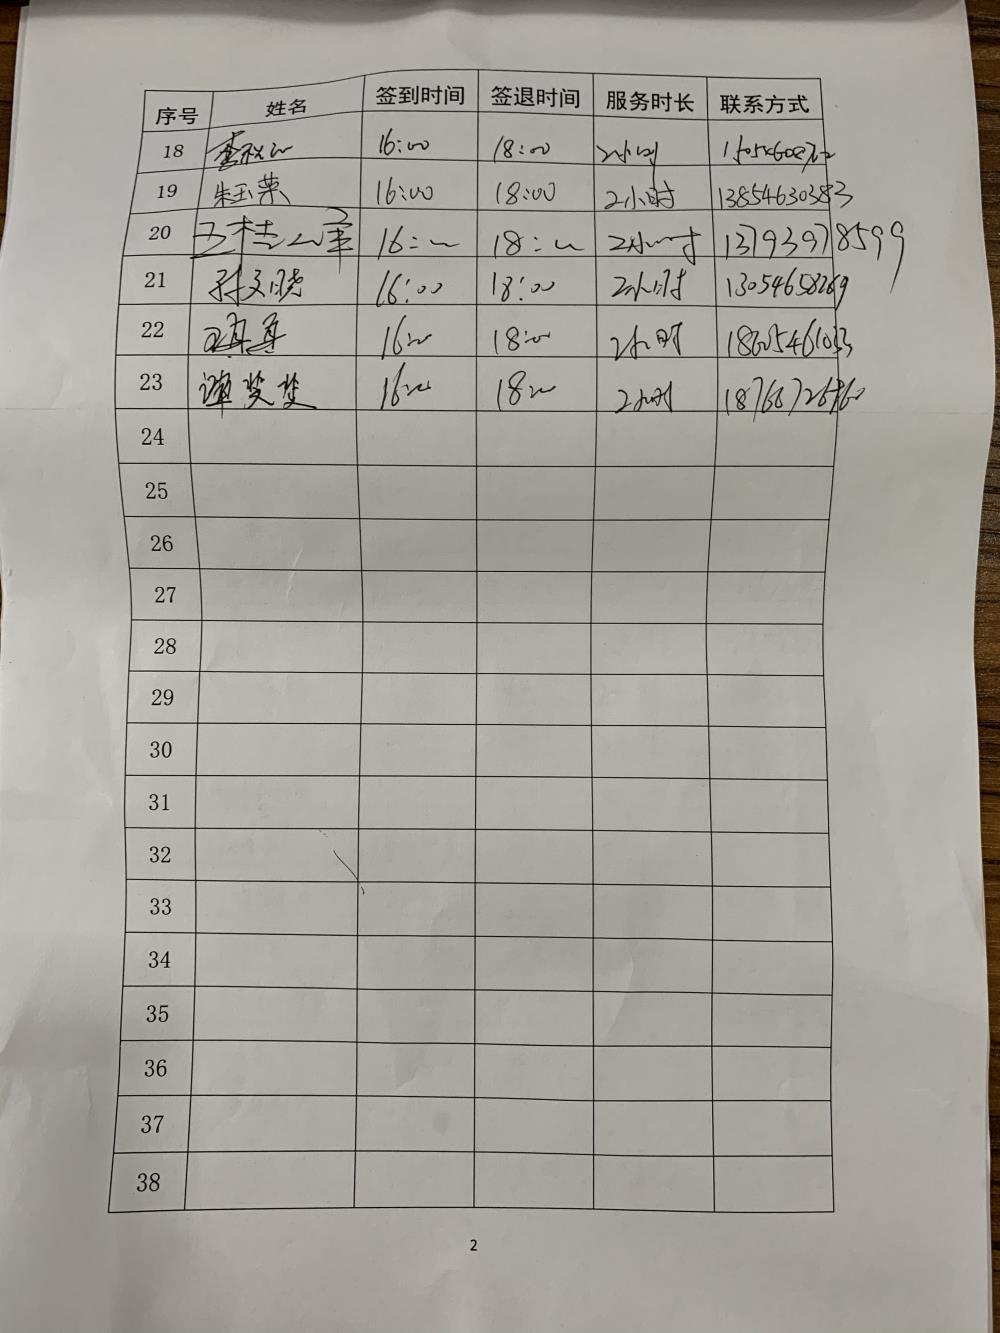 序号 姓名 签到时间 签退时间 服务时长 联系方式
18 16:00 18:00 2小时
19 朱玉荣 16:00 18:00 2小时 13854630383
20 王桂军 16:00 18:00 2小时 13793978599
21 孙文晓 16:00 18:00 2小时 13054658269
22 真真 1600 18:00 2小时 18605461033
23 谭斐斐 1600 1800 2小时
24
25
26
27
28
29
30
31
32
33
34
35
36
37
38
2